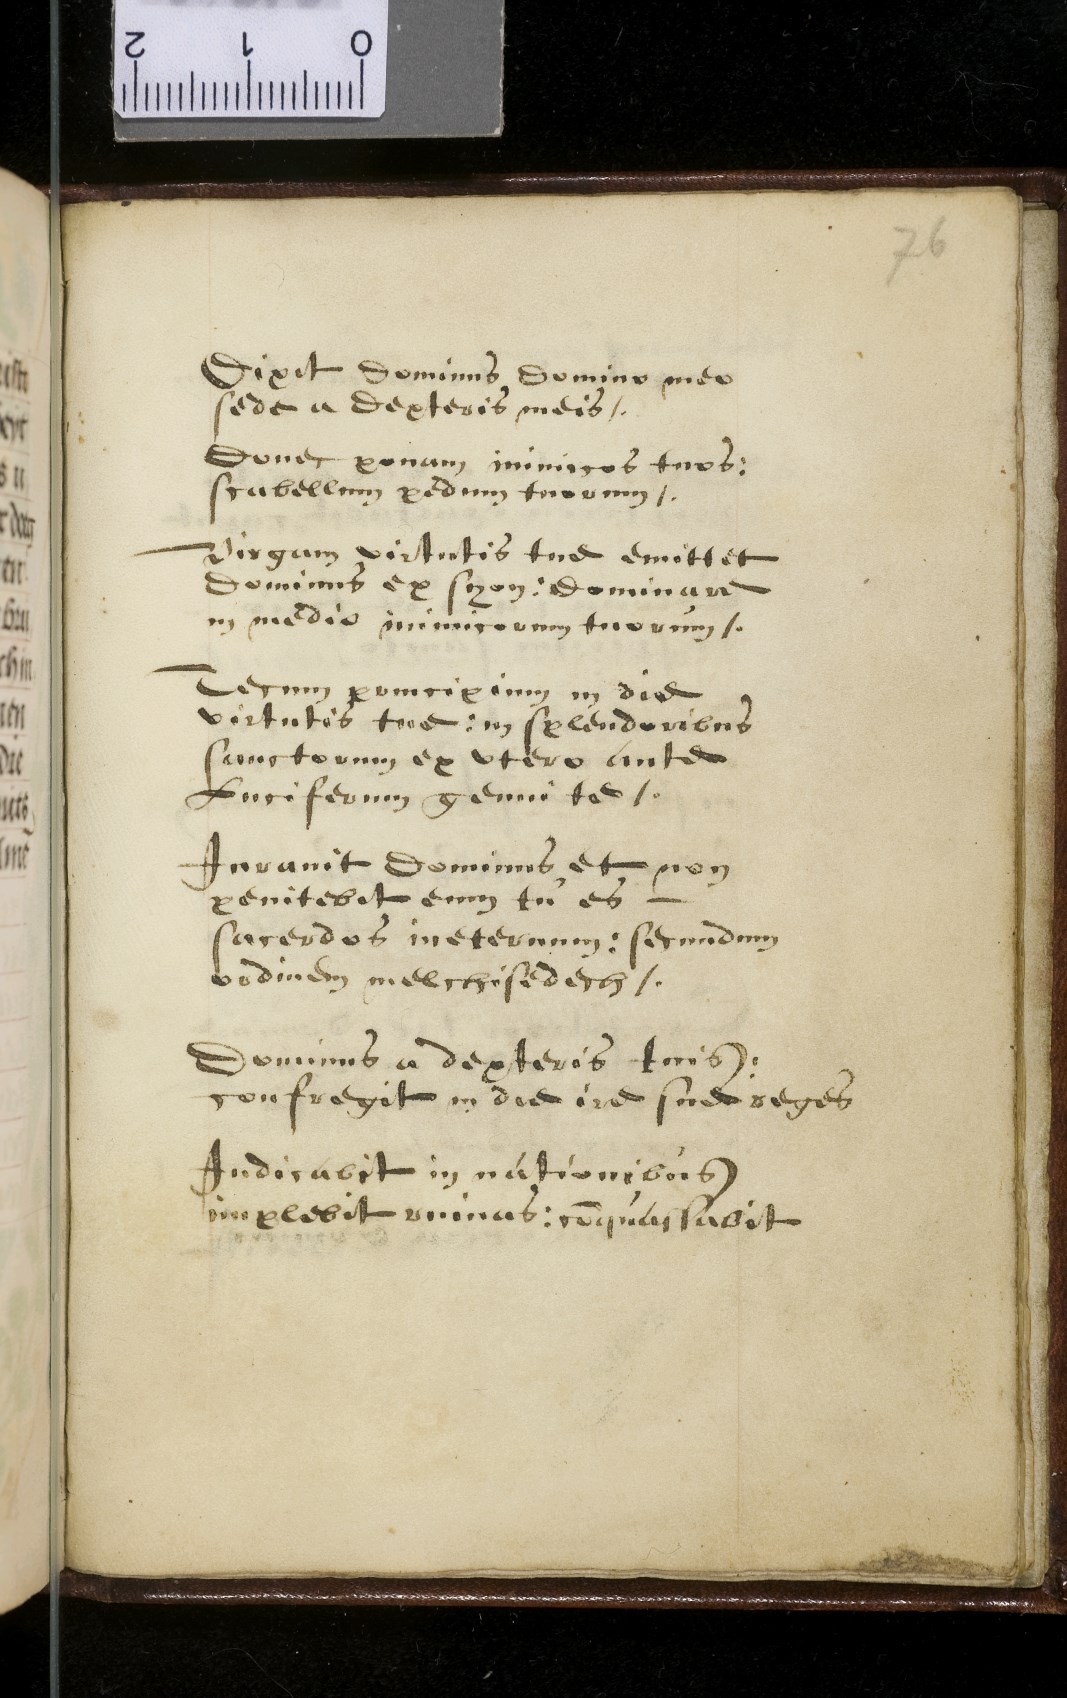 2 1 0
76
Dixit dominus domino meo
sede a dexteris meis /.
Donec ponam inimicos tuos:
scabellum pedum tuorum /.
Virgam virtutis tue emittet
dominus ex syon: dominare
in medio inimicorum tuorum /.
Tecum principium in die
virtutis tue: in splendoribus
sanctorum ex vtero ante
Luciferum genui te /.
Iurauit dominus et non
penitebit eum tu es —
sacerdos ineternum: secundum
ordinem melchisedech /.
Dominus a dexteris tuis:
confregit in die ire sue reges
Iudicabit in nationibus
implebit ruinas: cōquassabit